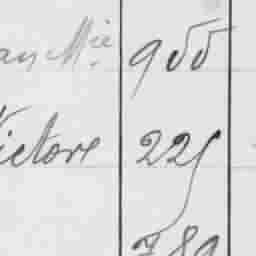 an Mie 955
Victore 225
789